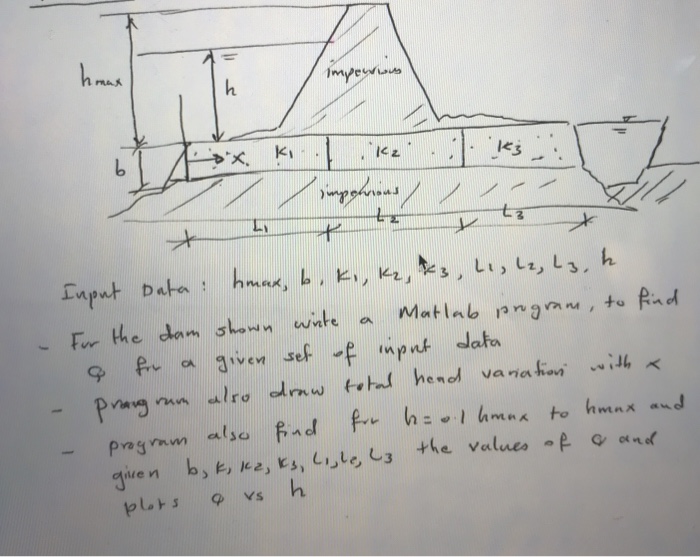 hmax
h
impervious
b
x.
K1
K2
K3
impervious
L1
L2
L3
Input Data : hmax, b, K1, K2, K3, L1, L2, L3, h
- For the dam shown write a Matlab program, to find
Q for a given set of input data
- program also draw total head variation with x
- program also find for h=0.1 hmax to hmax and
given b, K, K2, K3, L1, L2, L3 the values of Q and
plots Q vs h